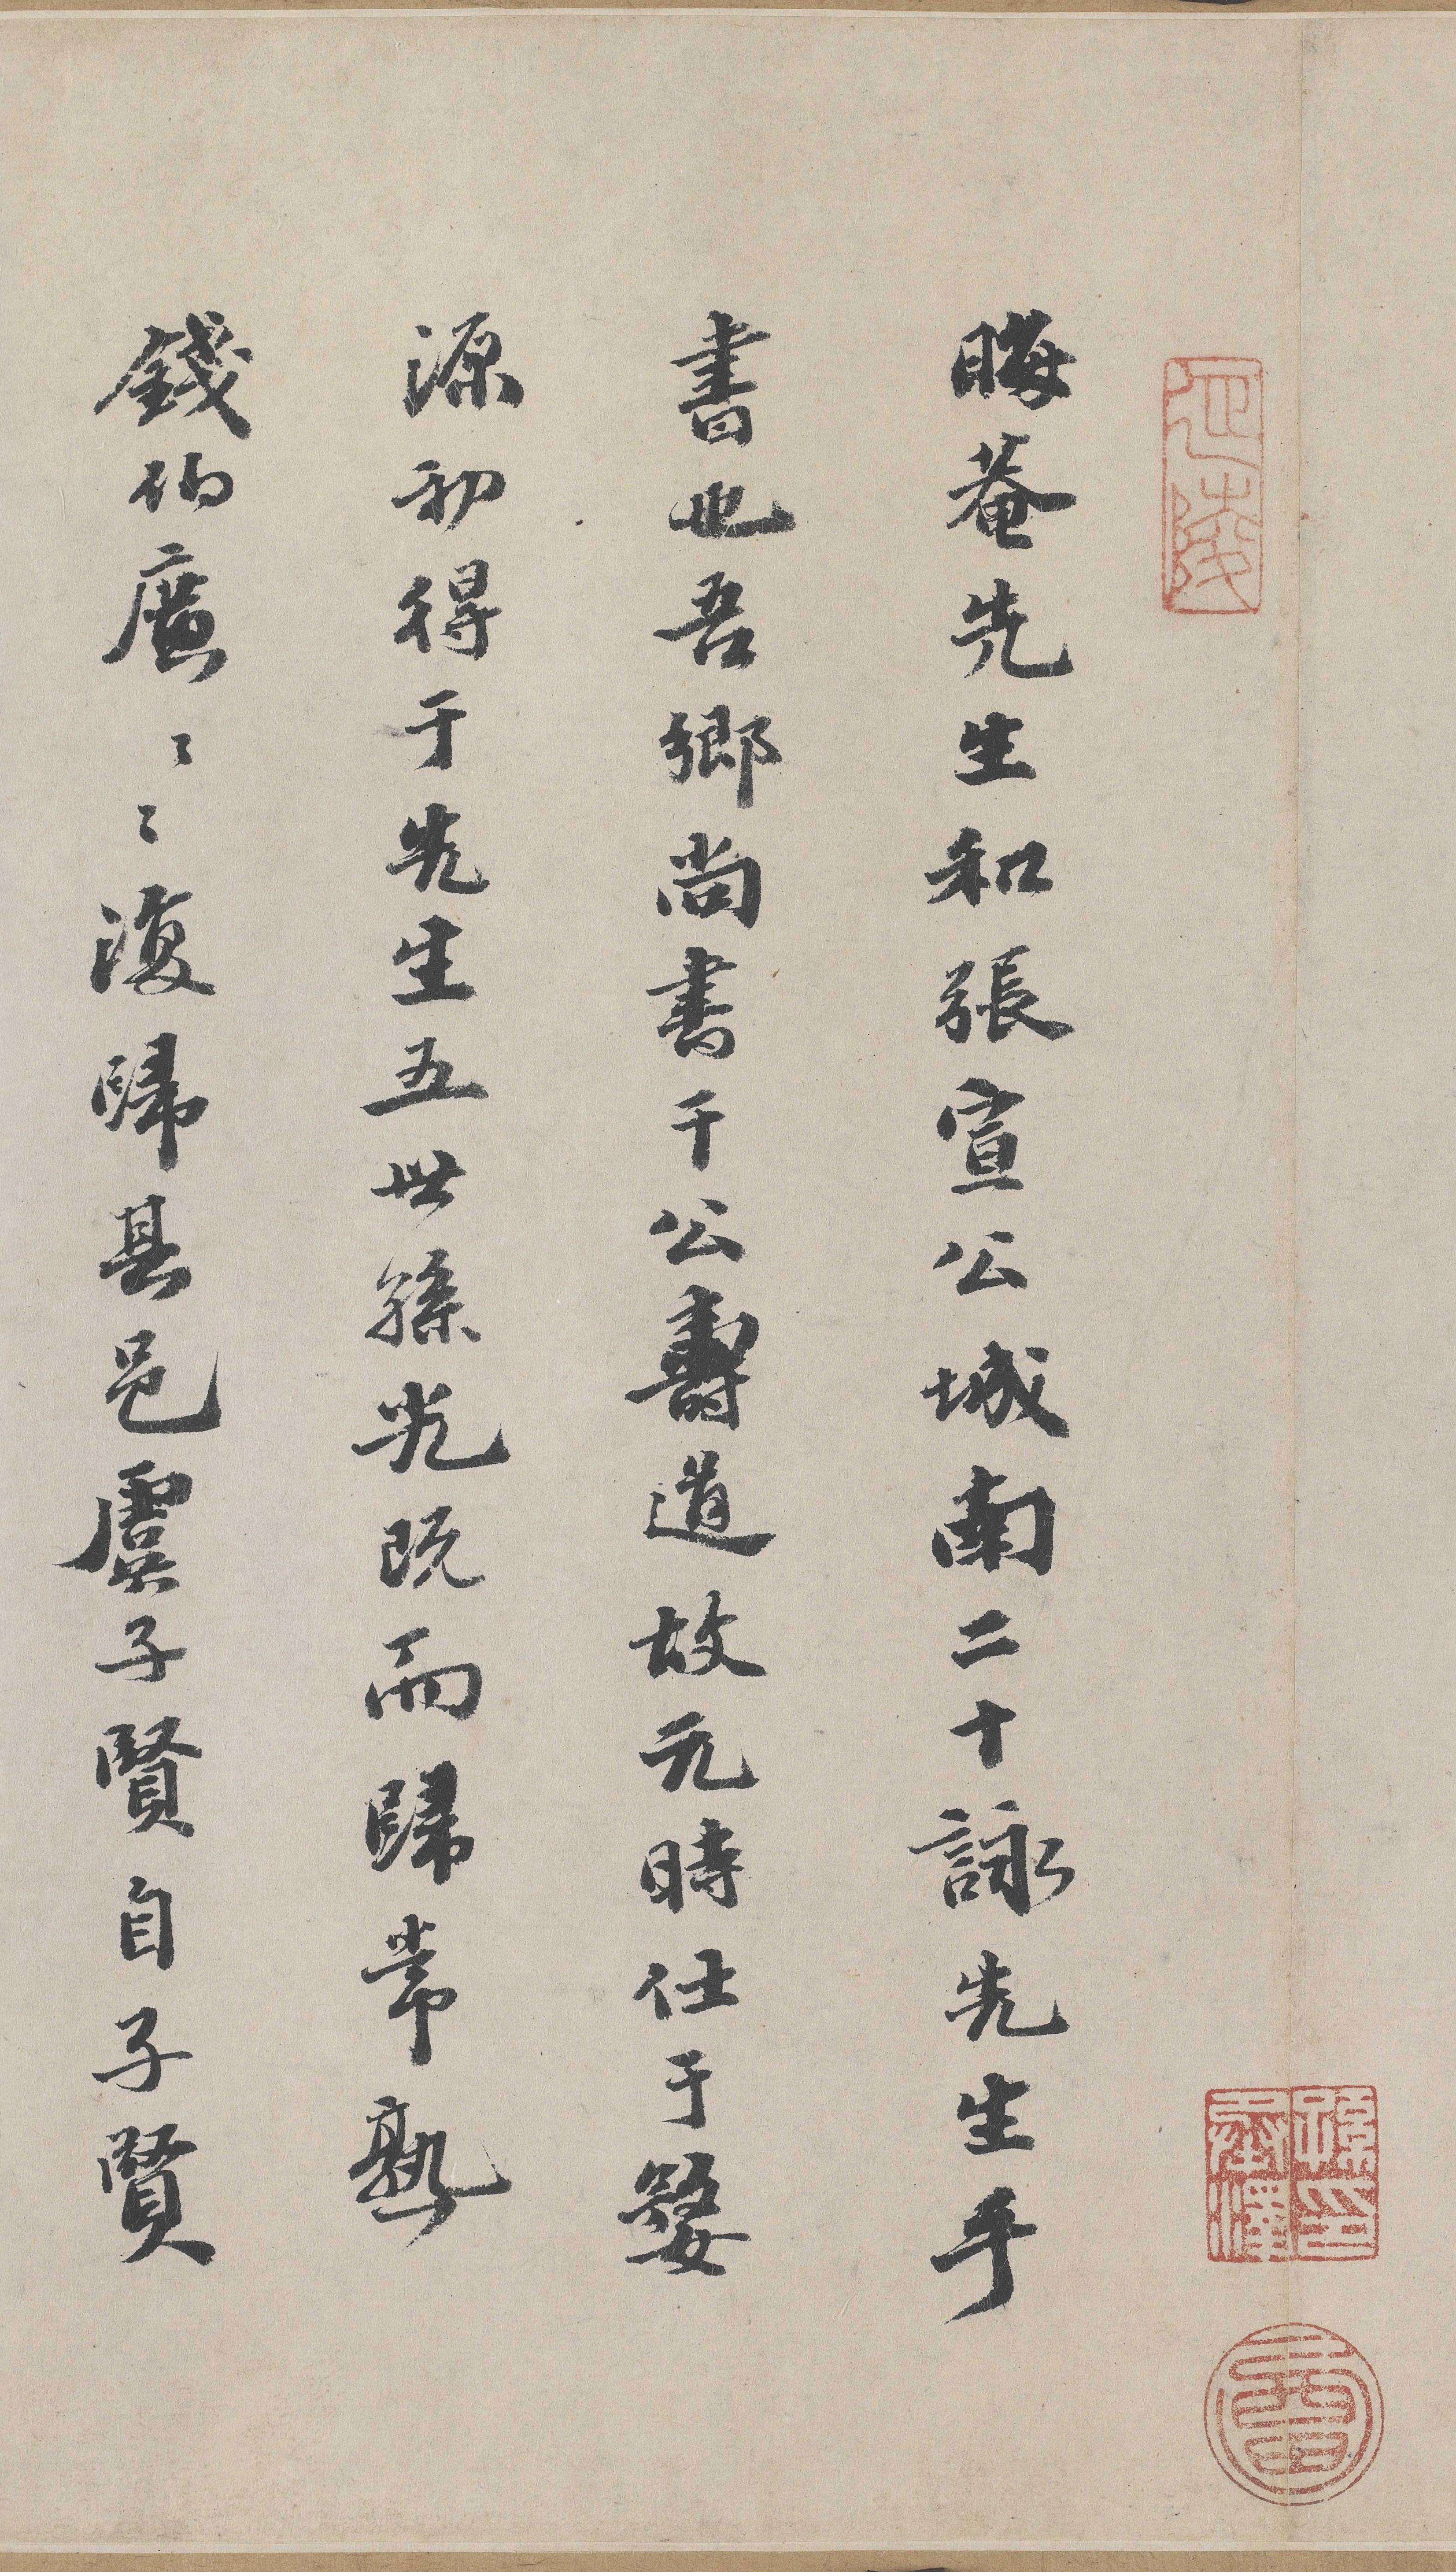 晦菴先生和張宣公城南二十詠先生手
書也吾鄉尚書干公壽道故元時仕于婺
源初得于先生五世孫光既而歸常熟
錢伯廣〻〻復歸其邑虞子賢自子賢